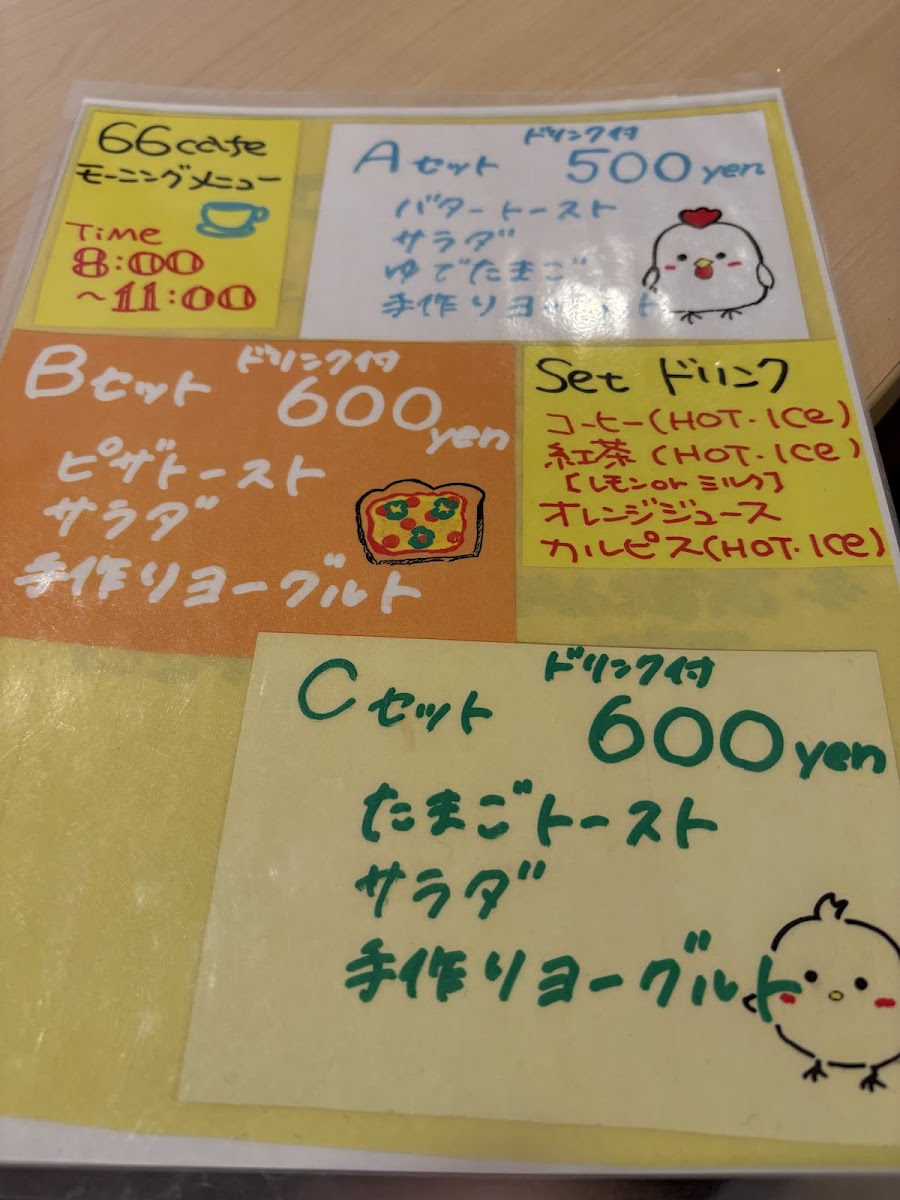 66cafe
モーニングメニュー
TIME
8:00
～11:00
Aセット ドリンク付 500yen
バタートースト
サラダ
ゆでたまご
手作りヨーグルト
Bセット ドリンク付 600yen
ピザトースト
サラダ
手作りヨーグルト
Set ドリンク
コーヒー(HOT・ICE)
紅茶(HOT・ICE)
[レモンorミルク]
オレンジジュース
カルピス(HOT・ICE)
Cセット ドリンク付 600yen
たまごトースト
サラダ
手作りヨーグルト